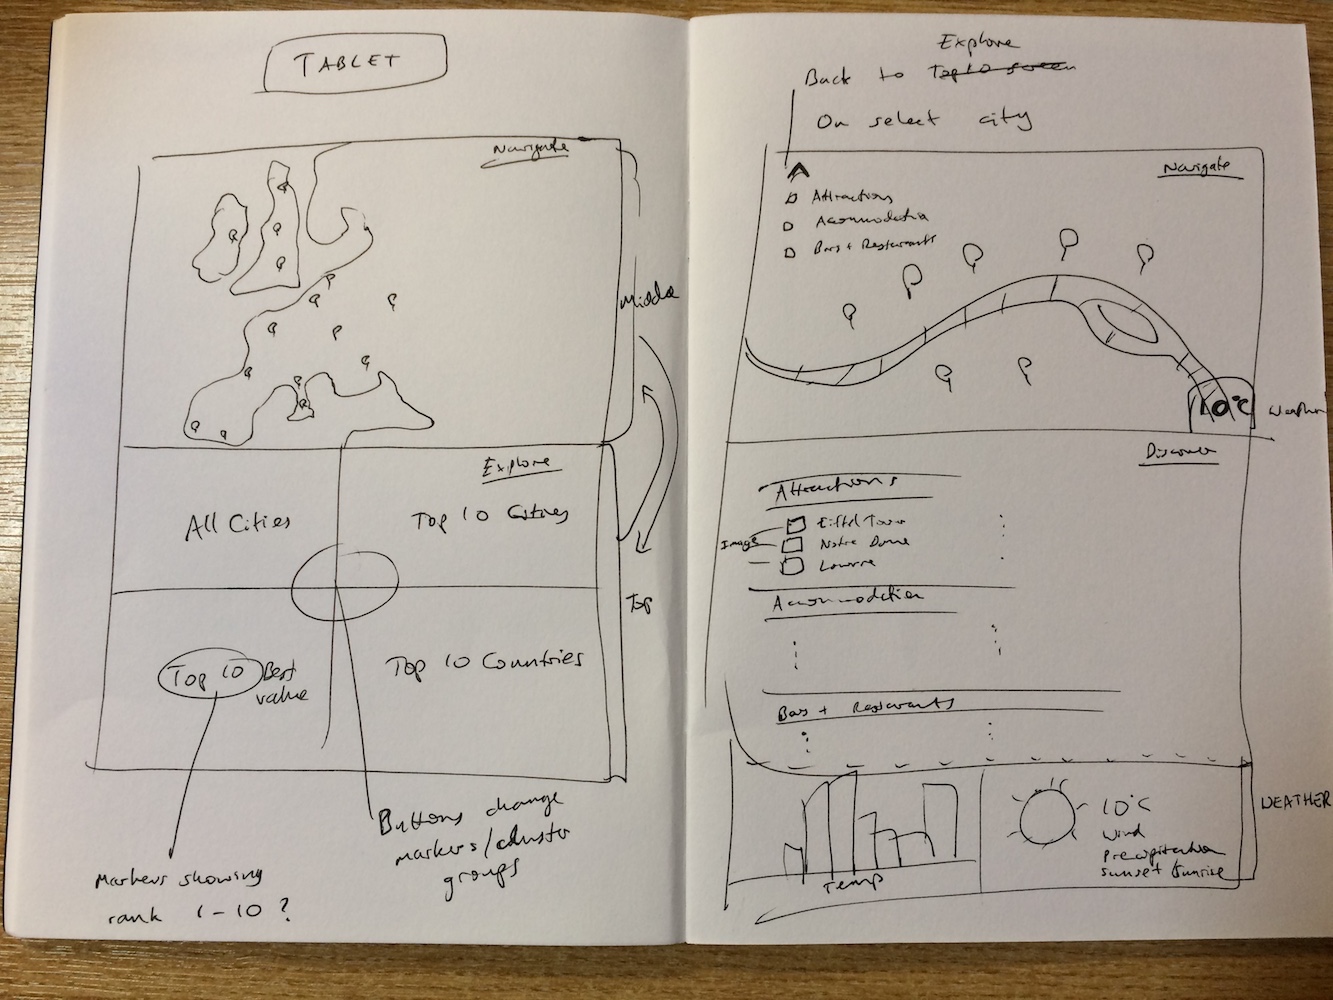 TABLET
Navigate
Middle
Explore
All Cities
Top 10 Cities
Top
Top 10 Best
value
Top 10 Countries
Buttons change
markers/cluster
groups
Markers showing
rank 1-10 ?
Explore
Back to Top 10 screen
On select city
Navigate
Attractions
Accomodation
Bars + Restaurants
10°C
Weather
Discover
Attractions
Image
Eiffel Tower
Notre Dame
Louvre
Accomodation
Bars + Restaurants
WEATHER
10°C
Wind
Precipitation
Sunset/Sunrise
Temp